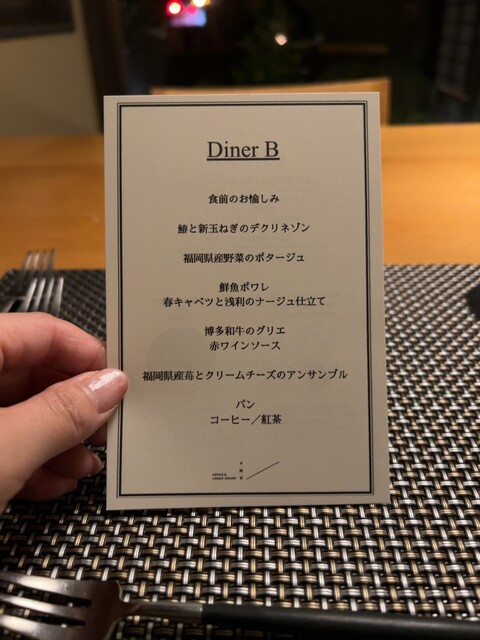 Diner B
食前のお愉しみ
鰆と新玉ねぎのデクリネゾン
福岡県産野菜のポタージュ
鮮魚ポワレ
春キャベツと浅利のナージュ仕立て
博多和牛のグリエ
赤ワインソース
福岡県産苺とクリームチーズのアンサンブル
パン
コーヒー／紅茶